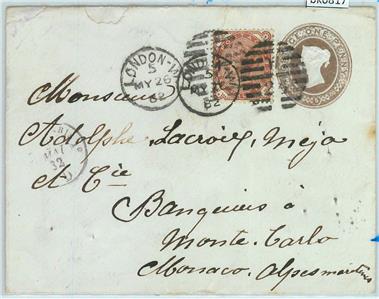 bk0817
LONDON-W
5
MY 26
82
LONDON
5
82
ONE PENNY
Monsieur
Adolphe Lacroix, Méja
& Cie
Banquiers à
Monte-Carlo
Monaco, Alpes maritimes